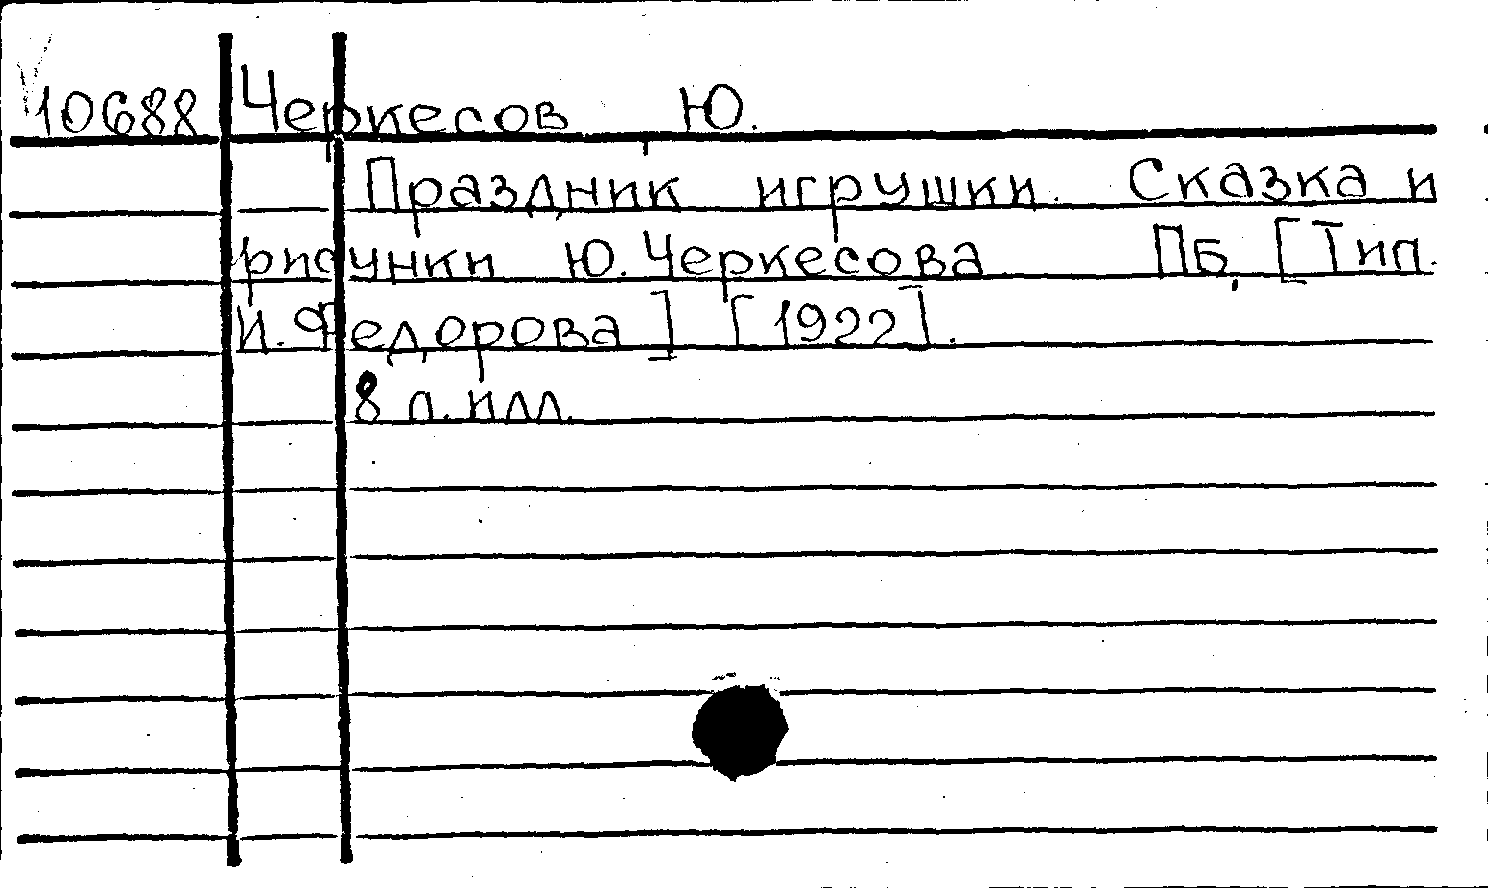 10688 Черкесов Ю.
Праздник игрушки. Сказка и
рисунки Ю. Черкесова Пб, [Тип.
И. Федорова] [1922].
8 л. илл.